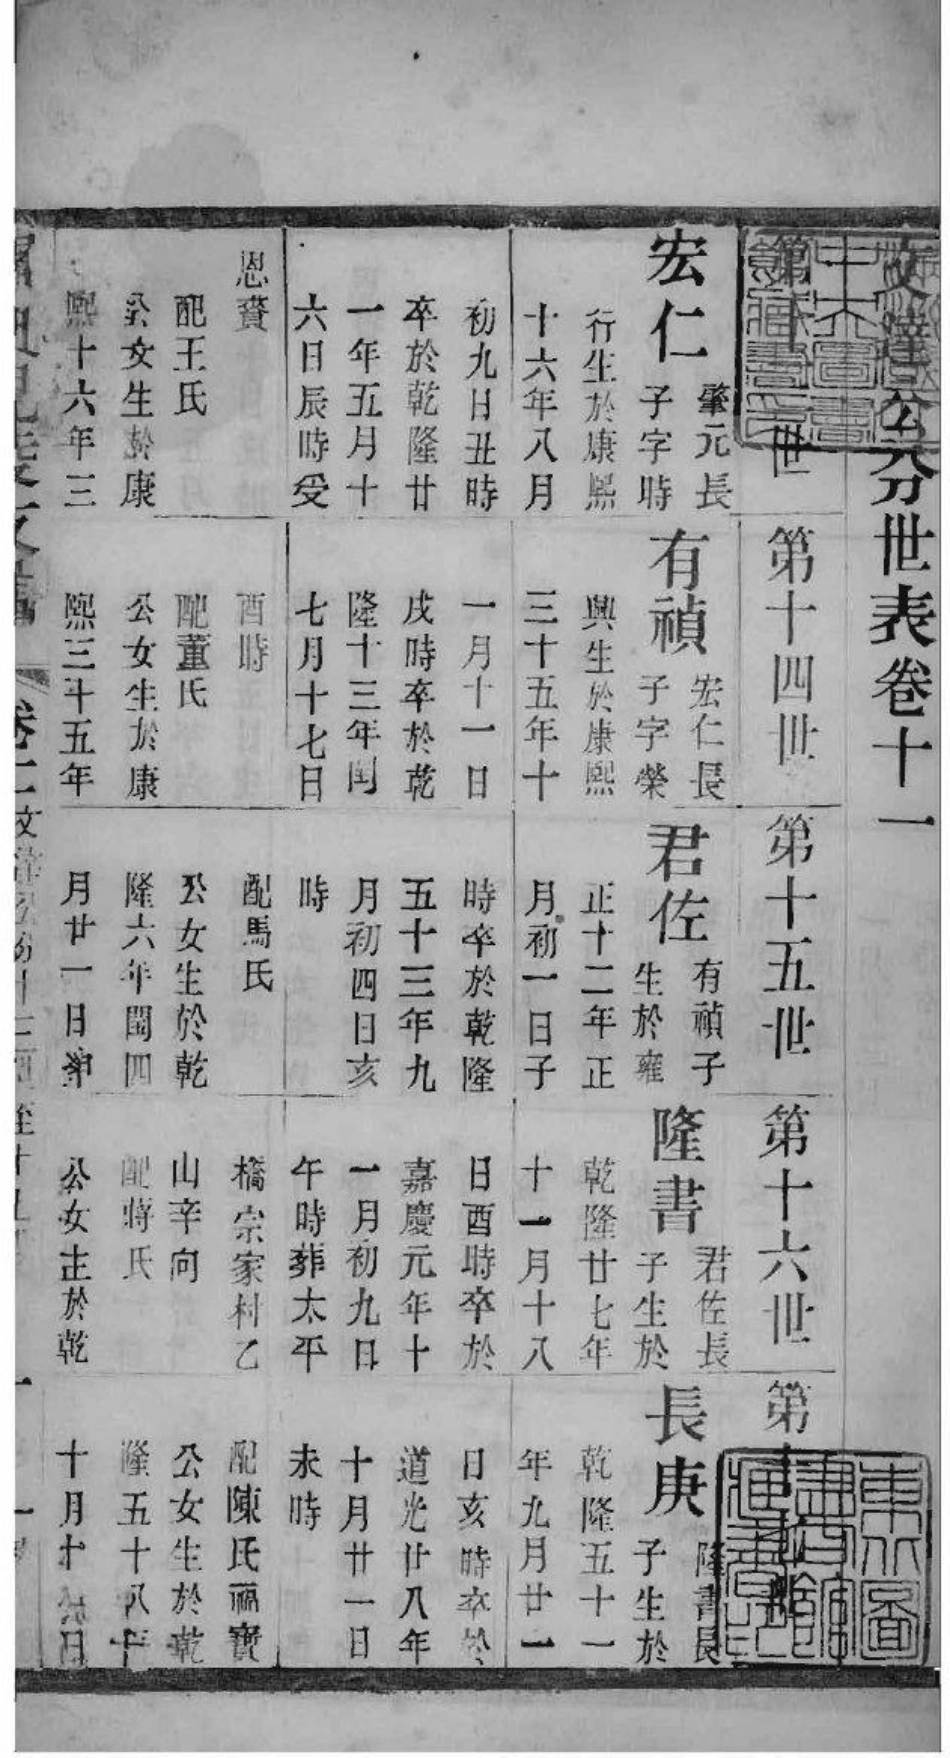 公分世表卷十一
第
世
宏仁
肇元長
子字時
行生於康熙
十六年八月
初九日丑時
卒於乾隆廿
一年五月十
六日辰時受
恩賚
配王氏
公女生於康
熙十六年三
第十四世
有禎
宏仁長
子字榮
興生於康熙
三十五年十
一月十一日
戌時卒於乾
隆十三年閏
七月十七日
酉時
配董氏
公女生於康
熙三十五年
第十五世
君佐
有禎子
生於雍
正十二年正
月初一日子
時卒於乾隆
五十三年九
月初四日亥
時
配馬氏
公女生於乾
隆六年閏四
月廿一日
第十六世
隆書
君佐長
子生於
乾隆廿七年
十一月十八
日酉時卒於
嘉慶元年十
一月初九日
午時葬太平
橋宗家村乙
山辛向
配蔣氏
公女生於乾
第
長庚
隆書長
子生於
乾隆五十一
年九月廿一
日亥時卒於
道光廿八年
十月廿一日
未時
配陳氏福寶
公女生於乾
隆五十八年
十月 日